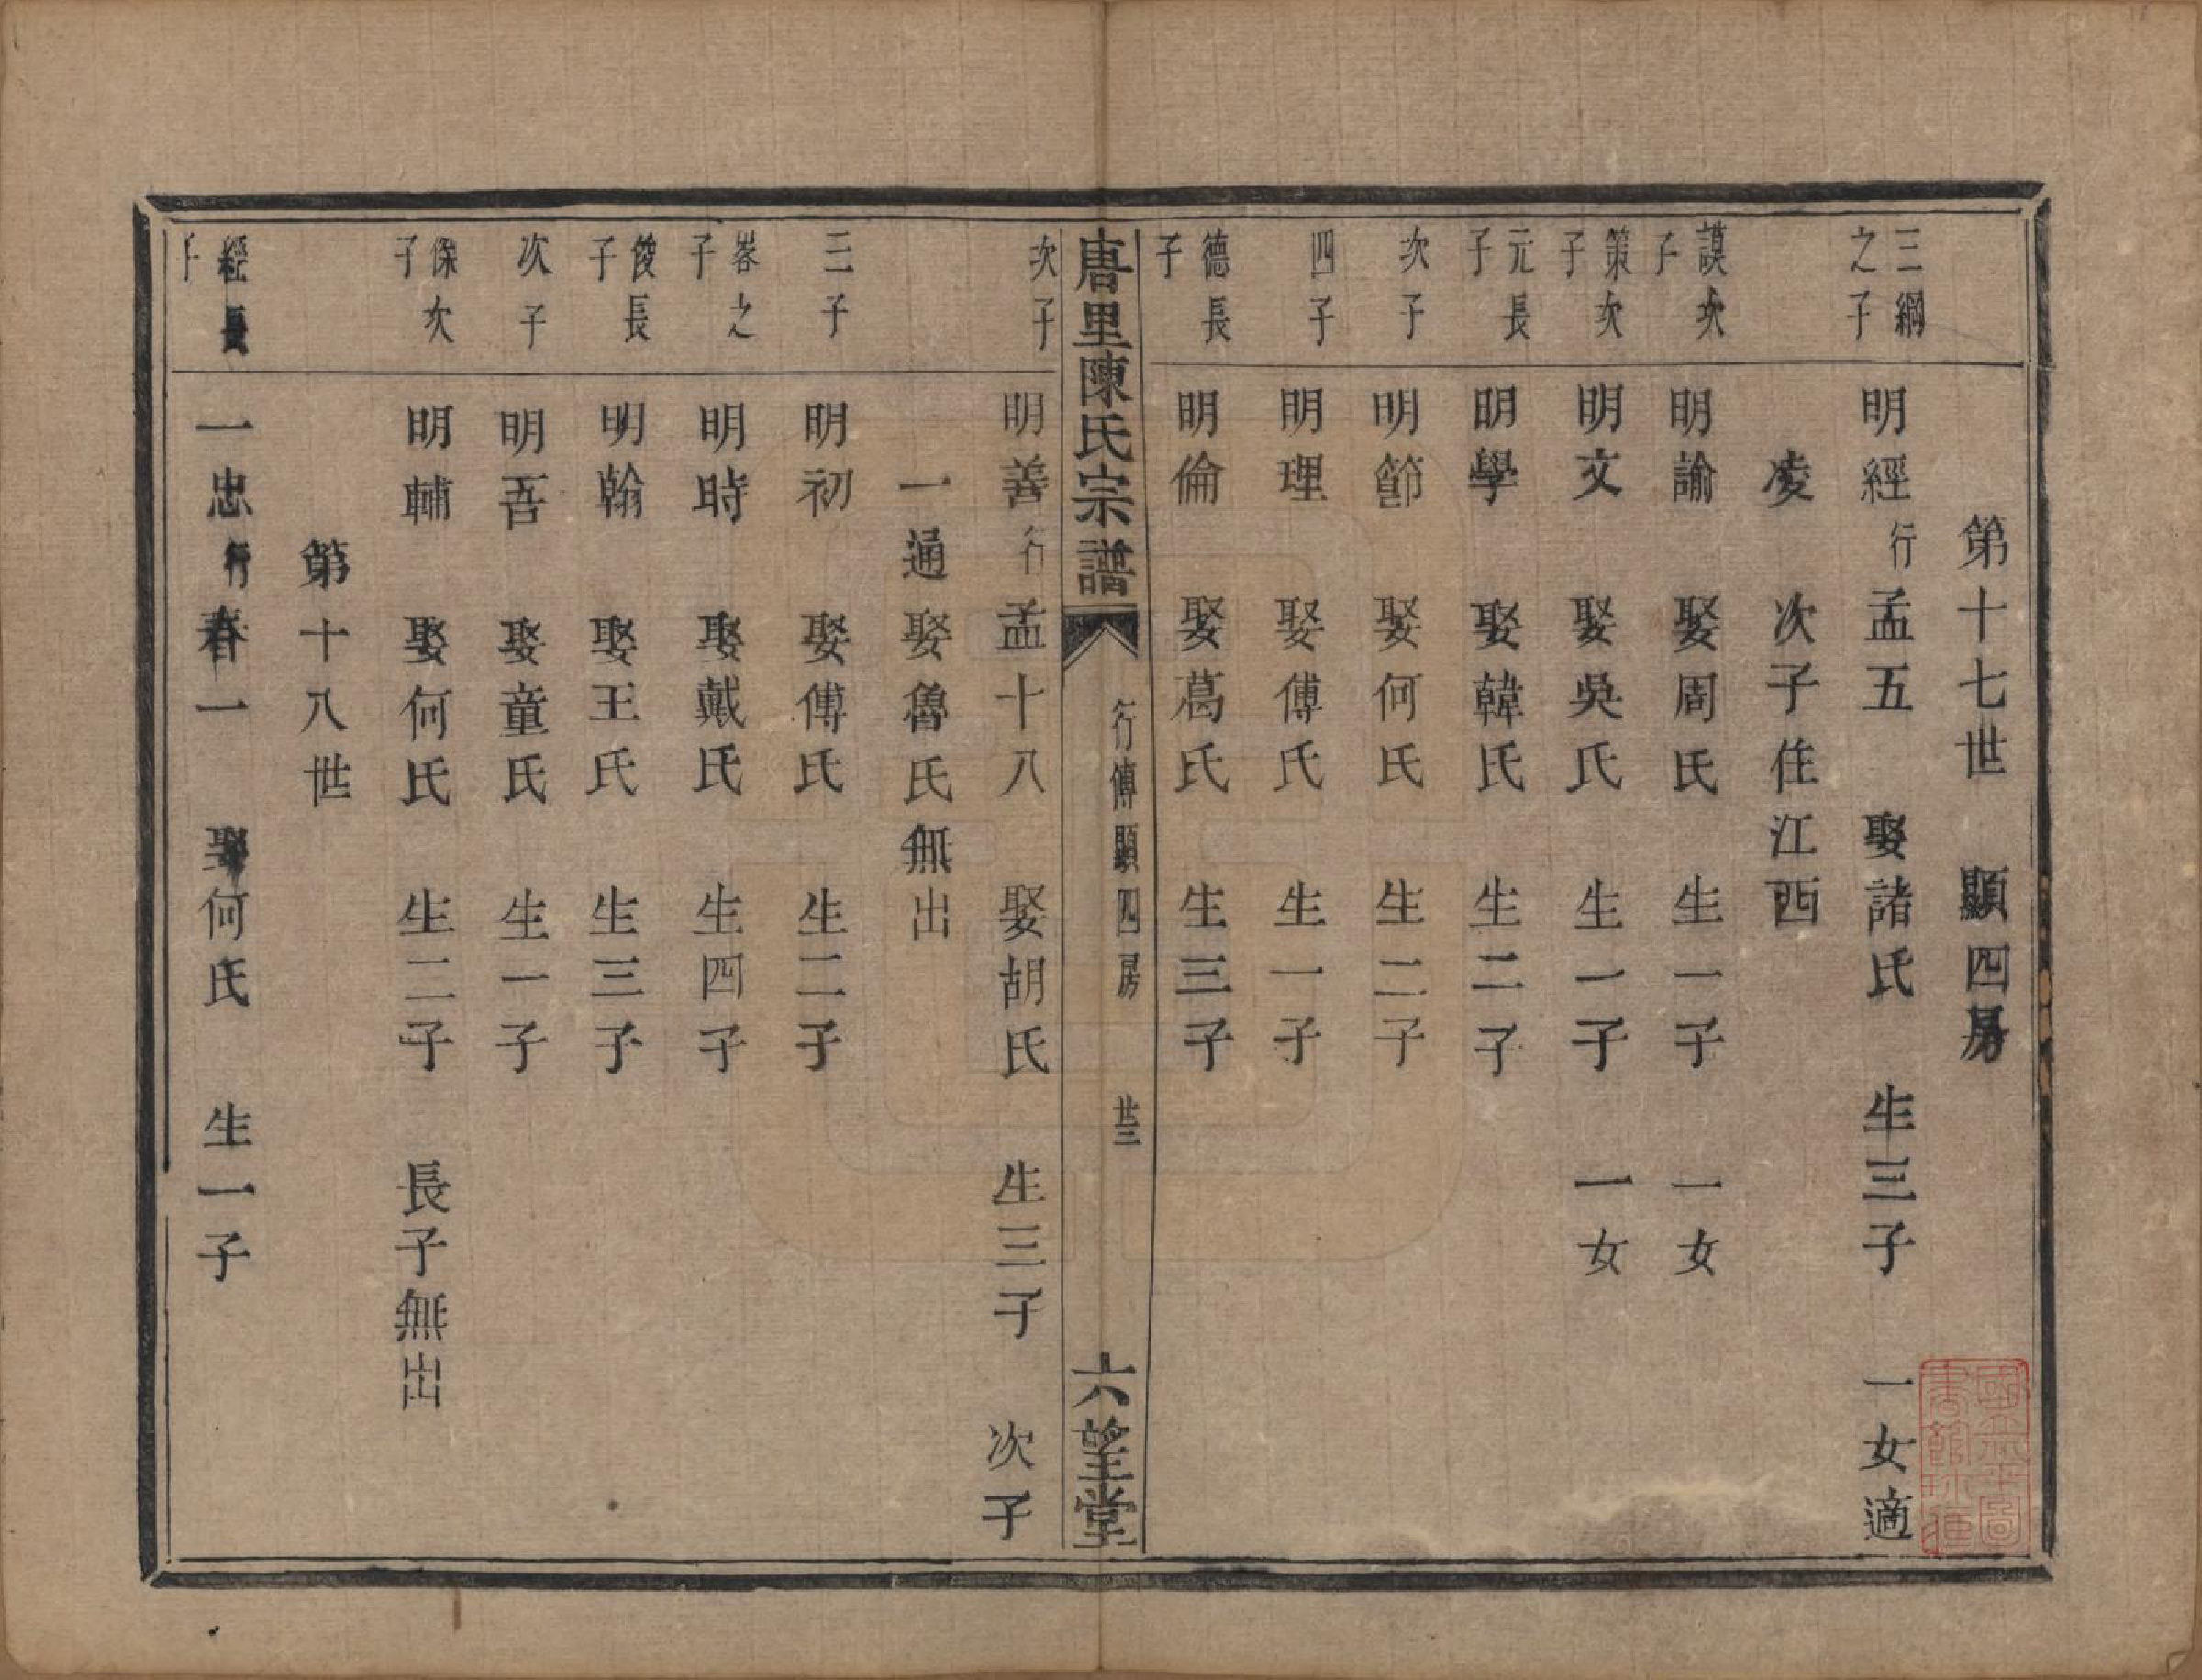 第十七世　顯四房
三綱之子　明經行孟五　娶諸氏　生三子　一女適
凌　次子住江西
謨次子　明諭　娶周氏　生一子　一女
策次子　明文　娶吳氏　生一子　一女
元長子　明學　娶韓氏　生二子
次子　明節　娶何氏　生二子
四子　明理　娶傅氏　生一子
德長子　明倫　娶葛氏　生三子
唐里陳氏宗譜　行傳顯四房　廿三　六望堂
次子　明善行孟十八　娶胡氏　生三子　次子
一通娶魯氏無出
三子　明初　娶傅氏　生二子
峉之子　明時　娶戴氏　生四子
俊長子　明翰　娶王氏　生三子
次子　明吾　娶童氏　生一子
傑次子　明輔　娶何氏　生二子　長子無出
第十八世
經長子　一忠行春一　娶何氏　生一子